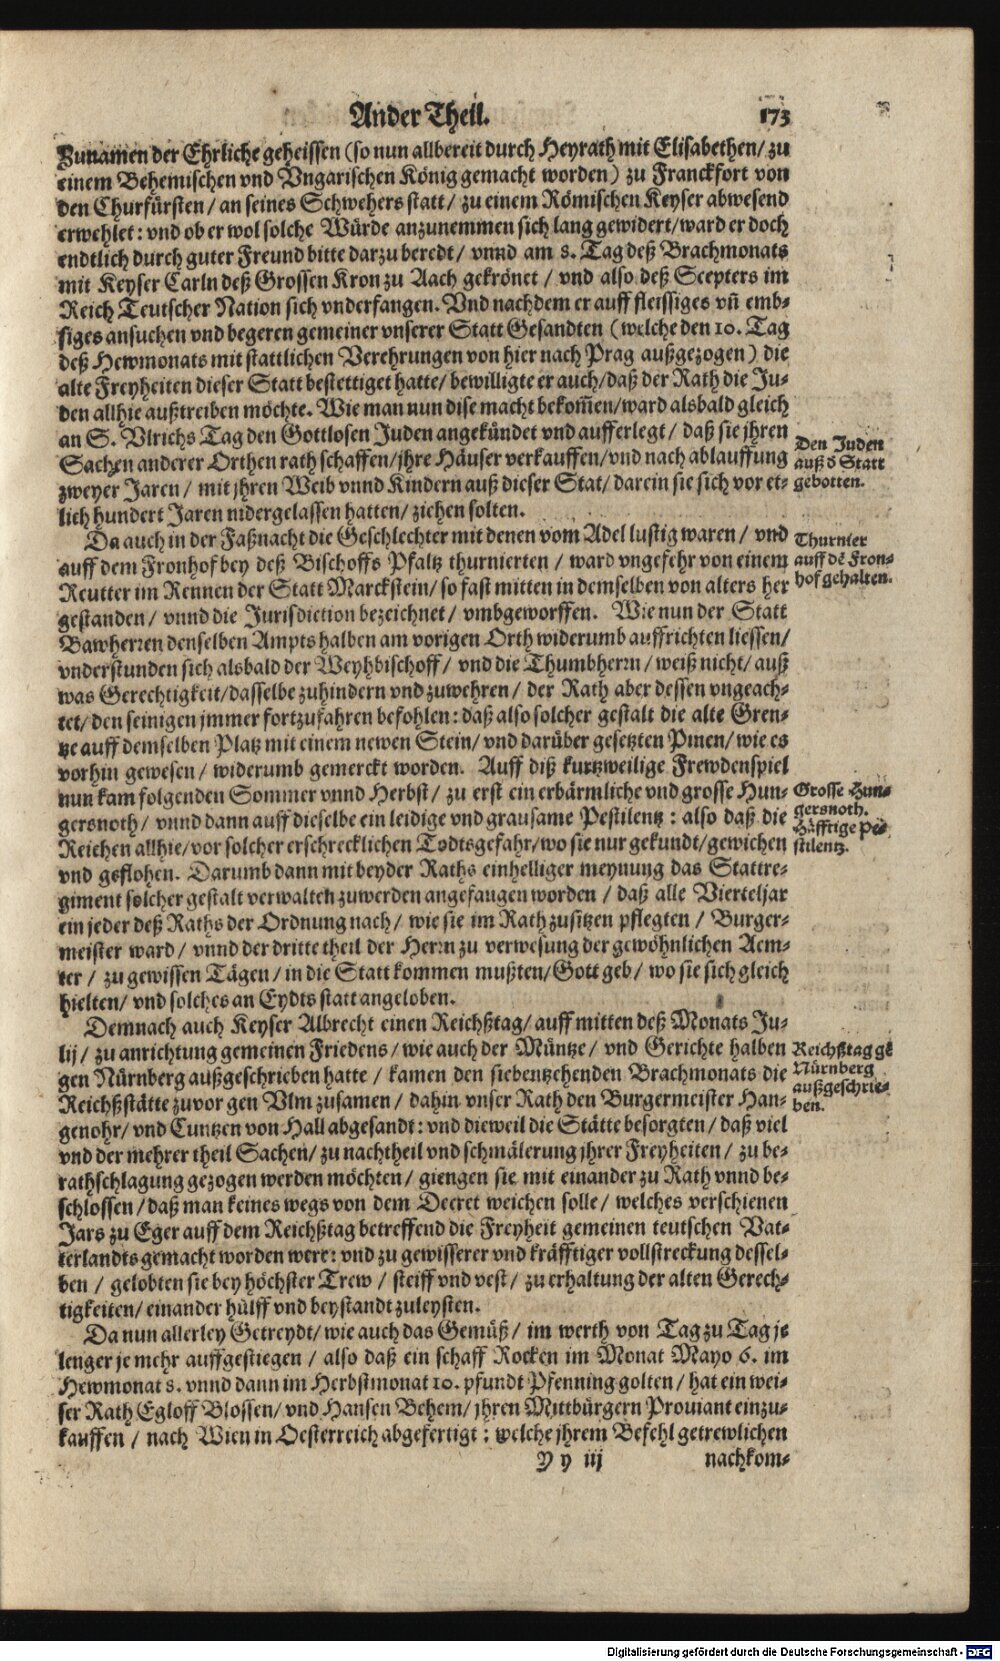 Ander Theil.
173
Zunamen der Ehrliche geheissen (so nun allbereit durch Heyrath mit Elisabethen/ zu
einem Behemischen vnd Vngarischen König gemacht worden) zu Franckfort von
den Churfürsten/ an seines Schwehers statt/ zu einem Römischen Keyser abwesend
erwehlet: vnd ob er wol solche Würde anzunemmen sich lang gewidert/ ward er doch
endtlich durch guter Freund bitte darzu beredt/ vnnd am 8. Tag deß Brachmonats
mit Keyser Carln deß Grossen Kron zu Aach gekrönet/ vnd also deß Scepters im
Reich Teutscher Nation sich vnderfangen. Vnd nachdem er auff fleissiges vn̄ emb-
siges ansuchen vnd begeren gemeiner vnserer Statt Gesandten (welche den 10. Tag
deß Hewmonats mit stattlichen Verehrungen von hier nach Prag außgezogen) die
alte Freyheiten dieser Statt bestettiget hatte/ bewilligte er auch/ daß der Rath die Ju-
den allhie außtreiben möchte. Wie man nun dise macht bekom̄en/ ward alsbald gleich
an S. Vlrichs Tag den Gottlosen Juden angekündet vnd aufferlegt/ daß sie jhren
Sachen anderer Orthen rath schaffen/ jhre Häuser verkauffen/ vnd nach ablauffung
zweyer Jaren/ mit jhren Weib vnnd Kindern auß dieser Stat/ darein sie sich vor et-
lich hundert Jaren nidergelassen hatten/ ziehen solten.
Den Juden
auß d̕ Statt
gebotten.
Da auch in der Faßnacht die Geschlechter mit denen vom Adel lustig waren/ vnd
auff dem Fronhof bey deß Bischoffs Pfaltz thurnierten/ ward vngefehr von einem
Reutter im Rennen der Statt Marckstein/ so fast mitten in demselben von alters her
gestanden/ vnnd die Jurisdiction bezeichnet/ vmbgeworffen. Wie nun der Statt
Bawherren denselben Ampts halben am vorigen Orth widerumb auffrichten liessen/
vnderstunden sich alsbald der Weyhbischoff/ vnd die Thumbherrn/ weiß nicht/ auß
was Gerechtigkeit/ dasselbe zuhindern vnd zuwehren/ der Rath aber dessen vngeach-
tet/ den seinigen jmmer fortzufahren befohlen: daß also solcher gestalt die alte Gren-
tze auff demselben Platz mit einem newen Stein/ vnd darüber gesetzten Pinen/ wie es
vorhin gewesen/ widerumb gemerckt worden. Auff diß kurtzweilige Frewdenspiel
nun kam folgenden Sommer vnnd Herbst/ zu erst ein erbärmliche vnd grosse Hun-
gersnoth/ vnnd dann auff dieselbe ein leidige vnd grausame Pestilentz: also daß die
Reichen allhie/ vor solcher erschrecklichen Todtsgefahr/ wo sie nur gekundt/ gewichen
vnd geflohen. Darumb dann mit beyder Raths einhelliger meynung das Stattre-
giment solcher gestalt verwalten zuwerden angefangen worden/ daß alle Vierteljar
ein jeder deß Raths der Ordnung nach/ wie sie im Rath zusitzen pflegten/ Burger-
meister ward/ vnnd der dritte theil der Herrn zu verwesung der gewöhnlichen Aem-
ter/ zu gewissen Tägen/ in die Statt kommen mußten/ Gott geb/ wo sie sich gleich
hielten/ vnd solches an Eydts statt angeloben.
Thurnier
auff dē Fron-
hof gehalten.
Grosse Hun-
gersnoth.
Häfftige Pe-
stilentz.
Demnach auch Keyser Albrecht einen Reichßtag/ auff mitten deß Monats Ju-
lij/ zu anrichtung gemeinen Friedens/ wie auch der Müntze/ vnd Gerichte halben
gen Nürnberg außgeschrieben hatte/ kamen den siebentzehenden Brachmonats die
Reichßstätte zuvor gen Vlm zusamen/ dahin vnser Rath den Burgermeister Han-
genohr/ vnd Cuntzen von Hall abgesandt: vnd dieweil die Stätte besorgten/ daß viel
vnd der mehrer theil Sachen/ zu nachtheil vnd schmälerung jhrer Freyheiten/ zu be-
rathschlagung gezogen werden möchten/ giengen sie mit einander zu Rath vnnd be-
schlossen/ daß man keines wegs von dem Decret weichen solle/ welches verschienen
Jars zu Eger auff dem Reichßtag betreffend die Freyheit gemeinen teutschen Vat-
terlandts gemacht worden were: vnd zu gewisserer vnd kräfftiger vollstreckung dessel-
ben/ gelobten sie bey höchster Trew/ steiff vnd vest/ zu erhaltung der alten Gerech-
tigkeiten/ einander hülff vnd beystandt zuleysten.
Reichßtag gē
Nürnberg
außgeschrie-
ben.
Da nun allerley Getreydt/ wie auch das Gemüß/ im werth von Tag zu Tag je
lenger je mehr auffgestiegen/ also daß ein schaff Rocken im Monat Mayo 6. im
Hewmonat 8. vnnd dann im Herbstmonat 10. pfundt Pfenning golten/ hat ein wei-
ser Rath Egloff Blossen/ vnd Hansen Behem/ jhren Mittbürgern Proviant einzu-
kauffen/ nach Wien in Oesterreich abgefertigt: welche jhrem Befehl getrewlichen
Y y iij
nachkom-
Digitalisierung gefördert durch die Deutsche Forschungsgemeinschaft - DFG